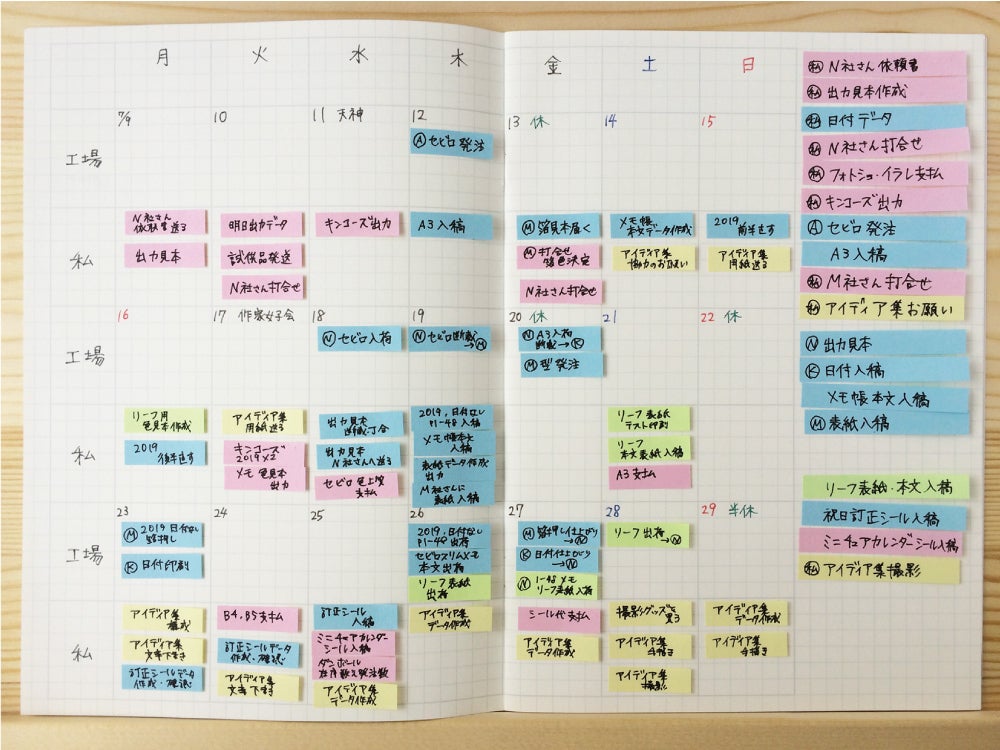 月 火 水 木 金 土 日
7/9 10 11 天神 12 13 休 14 15
工場
Ⓐ セビロ 発注
私
N社さん
依頼書送る
出力見本
明日出力データ
試供品発送
N社さん打合せ
キンコーズ出力
A3入稿
Ⓜ 箔見本届く
Ⓜ 打合せ
箔色決定
N社さん打合せ
メモ帳
本文データ作成
アイディア集
協力のお願い
2019
前半直す
アイディア集
用紙送る
16 17 作家女子会 18 19 20 休 21 22 休
工場
Ⓝ セビロ入稿
Ⓝ セビロ断裁
→Ⓜ
Ⓝ A3入稿
断裁→Ⓚ
Ⓜ 型発注
私
リーフ用
色見本作成
2019
後半直す
アイディア集
用紙送る
キンコーズ
2019×2
メモ色見本
出力
出力見本
断裁・丁合
出力見本
N社さんへ送る
セビロ色上質
支払
2019,日付なし
P1-48入稿
メモ帳本文
入稿
表紙データ作成
出力
M社さんに
表紙入稿
リーフ表紙
テスト印刷
リーフ
本文表紙入稿
A3支払
23 24 25 26 27 28 29 半休
工場
Ⓜ 2019日付なし
箔押し
Ⓚ 日付印刷
2019,日付なし
P1-48出荷
セビロスリムメモ
本文出荷
リーフ表紙
出荷
Ⓜ 箔押し仕上がり
→Ⓝ
Ⓚ 日付仕上がり
→Ⓝ
Ⓝ 1-48メモ
リーフ表紙入稿
リーフ出荷
→Ⓝ
私
アイディア集
構成
アイディア集
文章下書き
訂正シールデータ
作成・確認
B4,B5支払
訂正シールデータ
作成・確認
アイディア集
文章下書き
訂正シール
入稿
ミニチュアカレンダー
シール入稿
ダンボール
在庫数え発注数
アイディア集
データ作成
アイディア集
データ作成
シール代支払
アイディア集
データ作成
撮影グッズを
買う
アイディア集
手描き
アイディア集
撮影
アイディア集
データ作成
アイディア集
手描き
㋐ N社さん依頼書
私 出力見本作成
私 日付データ
私 N社さん打合せ
私 フォトショ・イラレ支払
私 キンコーズ出力
Ⓐ セビロ発注
A3入稿
私 M社さん打合せ
私 アイディア集お願い
Ⓝ 出力見本
Ⓚ 日付入稿
メモ帳本文入稿
Ⓜ 表紙入稿
リーフ表紙・本文入稿
祝日訂正シール入稿
ミニチュアカレンダーシール入稿
私 アイディア集撮影